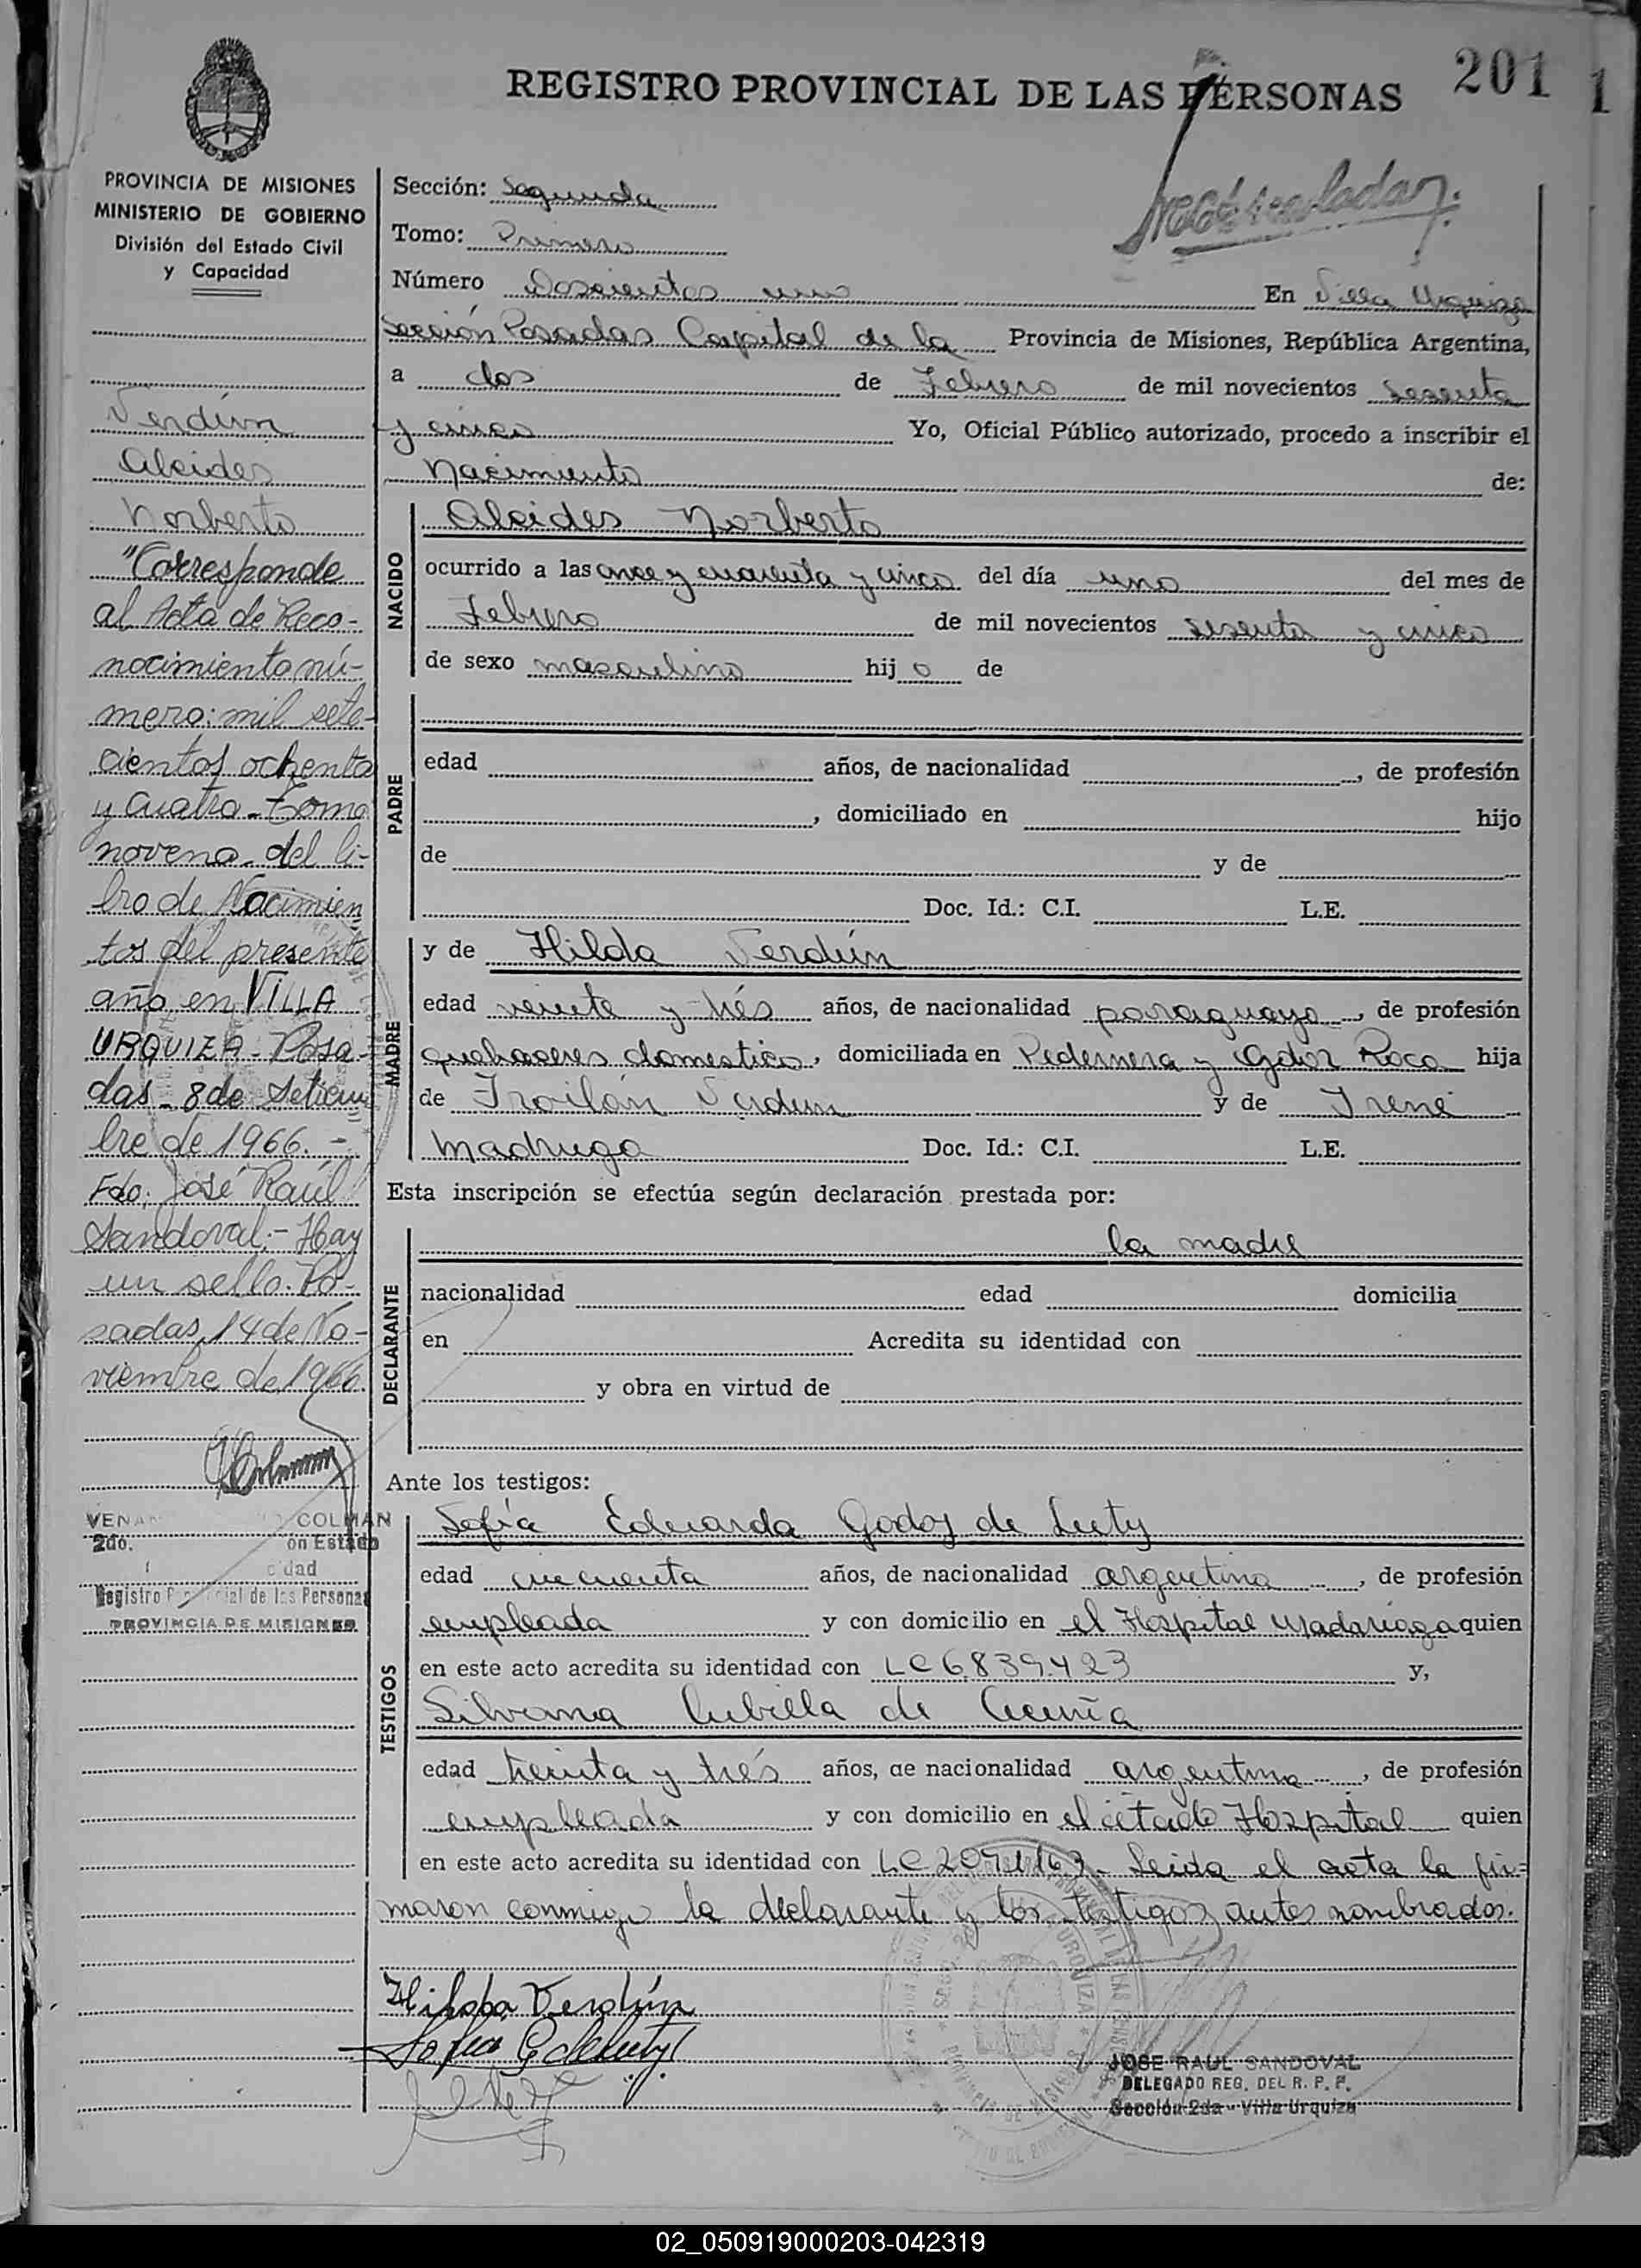 REGISTRO PROVINCIAL DE LAS PERSONAS
201
1
PROVINCIA DE MISIONES
MINISTERIO DE GOBIERNO
División del Estado Civil
y Capacidad
Verdún
Alcides
Norberto
"Corresponde
al Acta de Reco-
nocimiento nú-
mero: mil sete-
cientos ochenta
y cuatro - Tomo
noveno - del li-
bro de Nacimien
tos del presente
año en VILLA
URQUIZA - Posa-
das - 8 de Setiem
bre de 1966. -
Fdo: José Raúl
Sandoval. - Hay
un sello. Po-
sadas, 14 de No-
viembre de 1966.
VENAN COLMAN
2do. ón Estado
cidad
Registro P cial de las Personas
PROVINCIA DE MISIONES
Sección: Segunda
Tomo: Primero
Número Doscientos uno En Villa Urquiza
Sección Posadas Capital de la Provincia de Misiones, República Argentina,
a dos de Febrero de mil novecientos sesenta
y cinco Yo, Oficial Público autorizado, procedo a inscribir el
Nacimiento de:
NACIDO
Alcides Norberto
ocurrido a las once y cuarenta y cinco del día uno del mes de
Febrero de mil novecientos sesenta y cinco
de sexo masculino hijo de
PADRE
edad años, de nacionalidad , de profesión
, domiciliado en hijo
de y de
Doc. Id.: C.I. L.E.
MADRE
y de Hilda Verdún
edad veinte y trés años, de nacionalidad paraguaya , de profesión
quehaceres domestico, domiciliada en Pedernera y Gdor Roca hija
de Troilán Verdun y de Irene
Madruga Doc. Id.: C.I. L.E.
Esta inscripción se efectúa según declaración prestada por:
DECLARANTE
la madre
nacionalidad edad domicilia
en Acredita su identidad con
y obra en virtud de
Ante los testigos:
TESTIGOS
Sofía Eduarda Godoy de Luty
edad cincuenta años, de nacionalidad argentina , de profesión
empleada y con domicilio en el Hospital Madariaga quien
en este acto acredita su identidad con LC 6.839.423 y,
Silvana Cubilla de Acuña
edad treinta y trés años, de nacionalidad argentina , de profesión
empleada y con domicilio en el citado Hospital quien
en este acto acredita su identidad con LC Leida el acta la fir=
maron conmigo la declarante y los testigos antes nombrados.
Hilda Verdún
Sofía G de Luty
JOSE RAUL SANDOVAL
DELEGADO REG. DEL R. P. P.
Sección 2da - Villa Urquiza
02_050919000203-042319